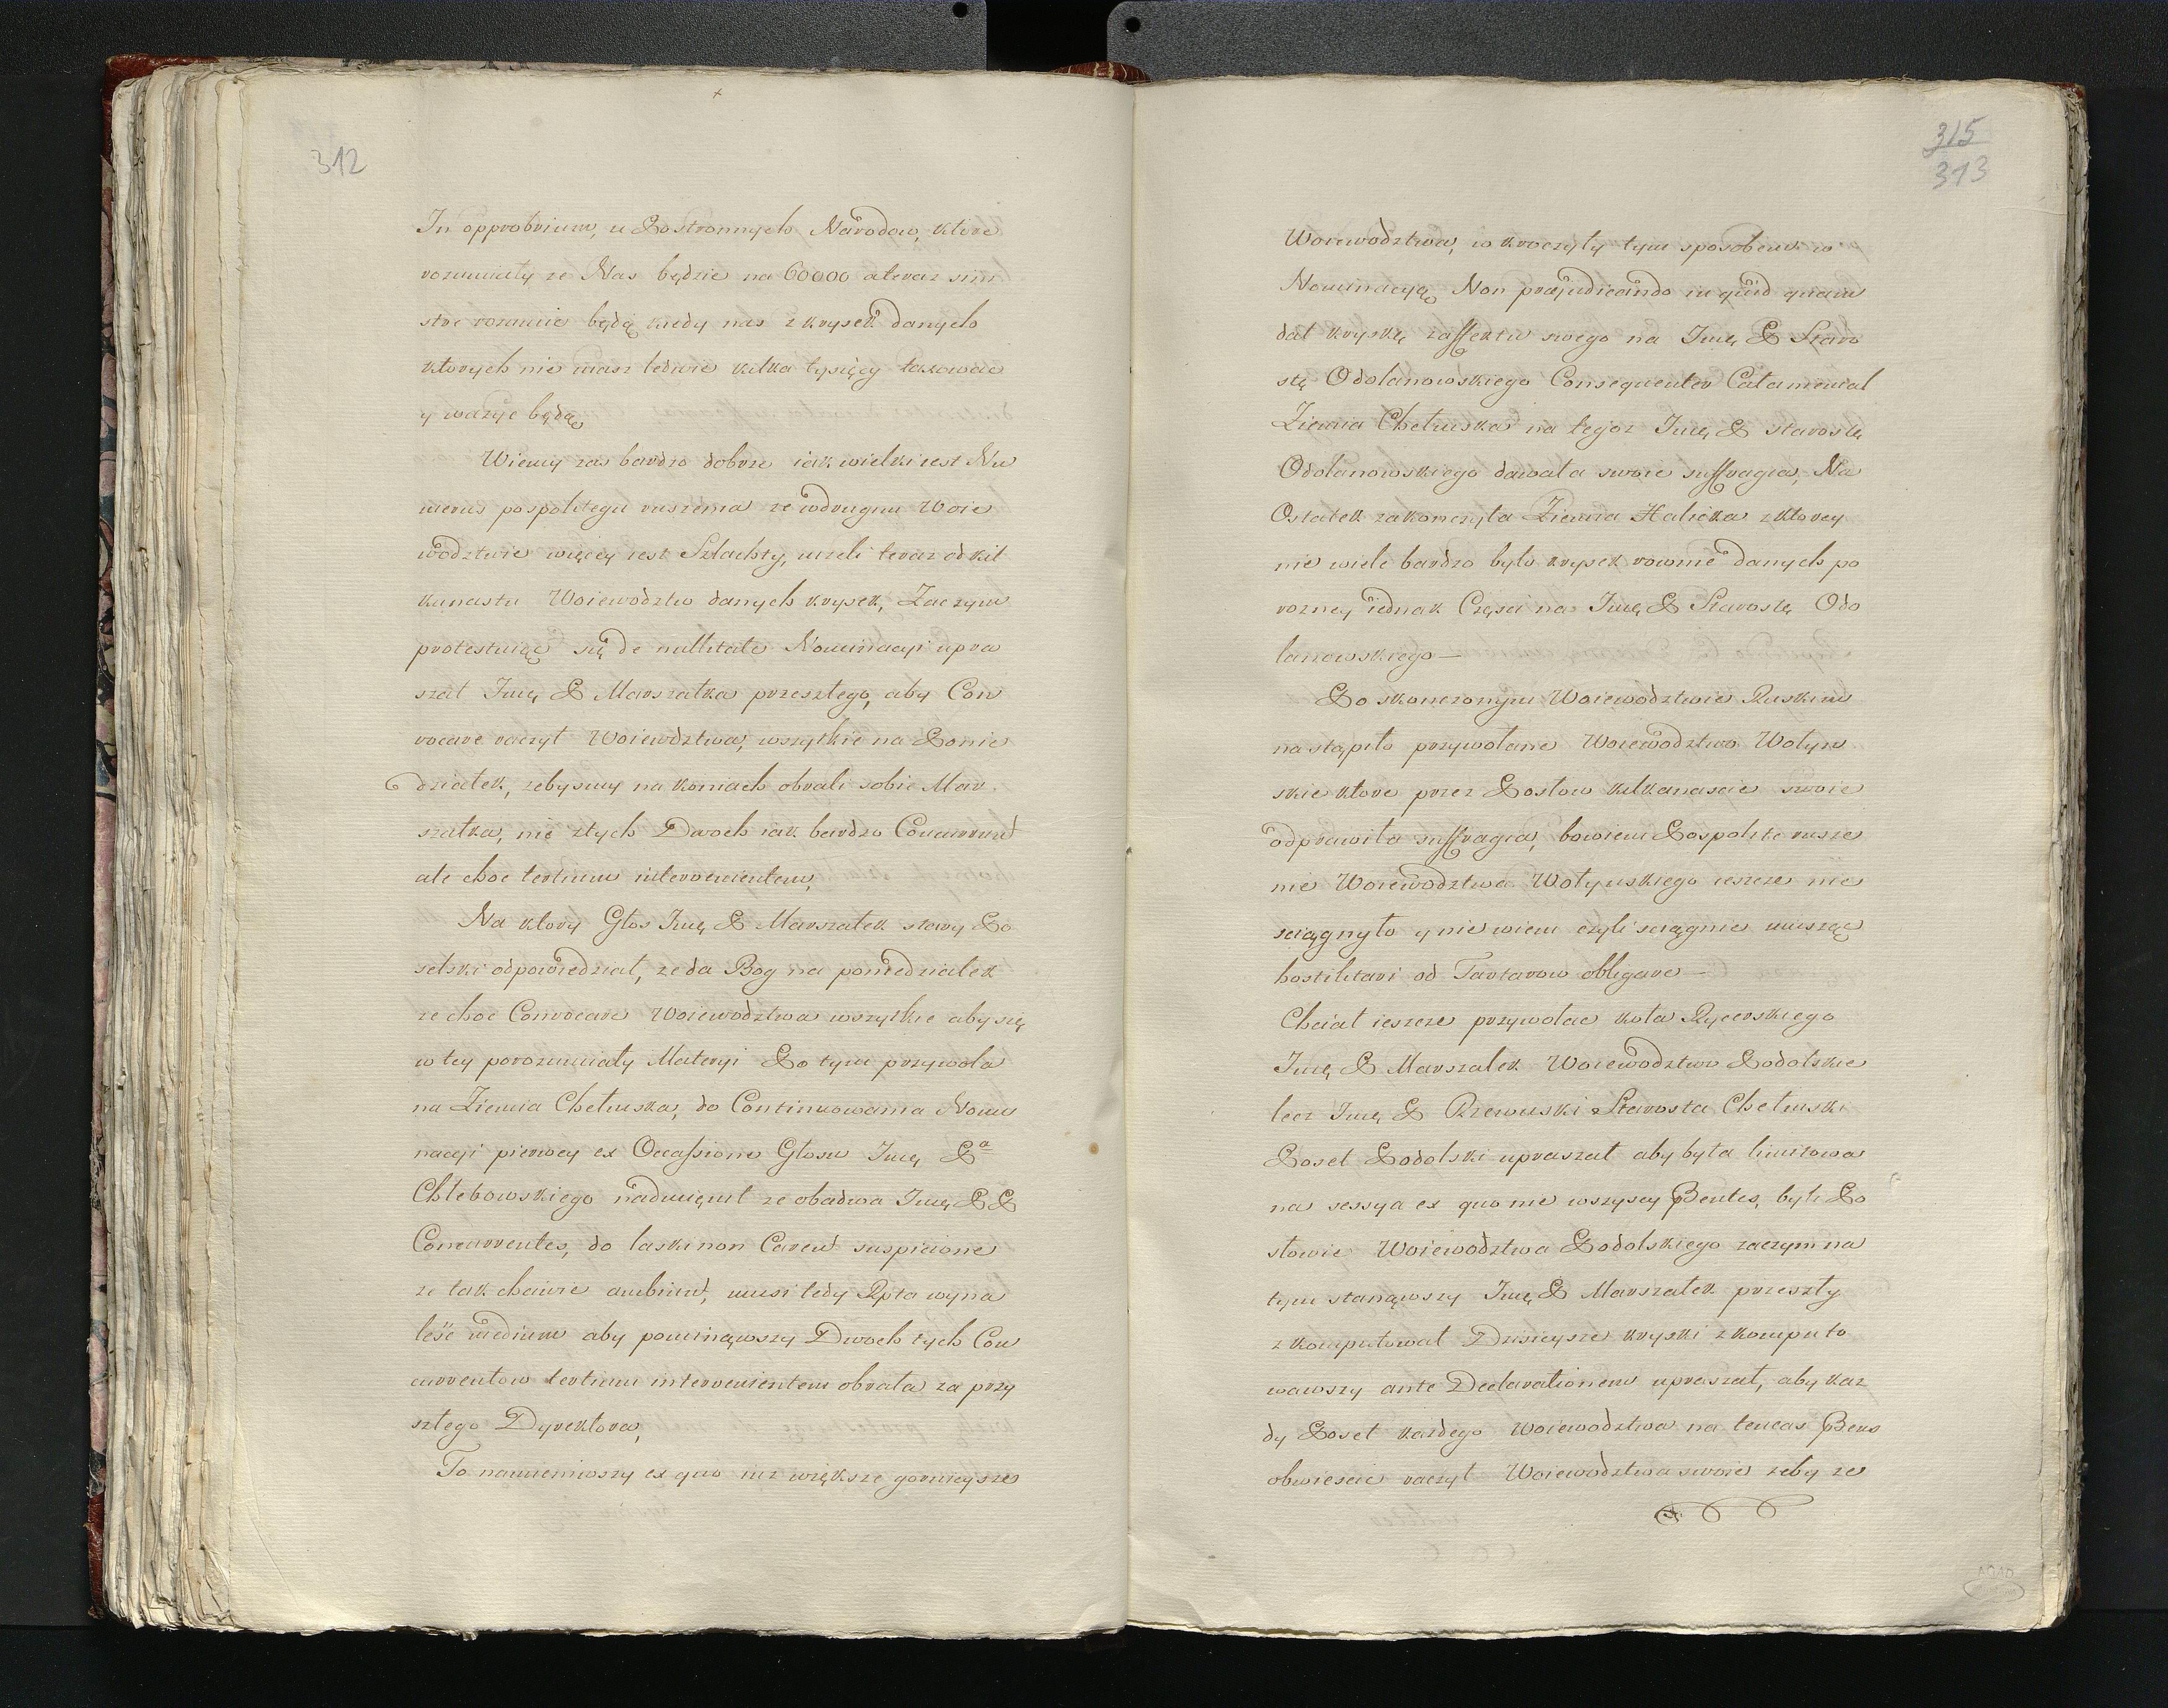 312
In opprobrium, u Postronnych Narodow, ktore
rozumiały ze Nas będzie na 60000 ateraz sini
stre rozumie będą kiedy nas z krysek danych
ktorych nie masz ledwie kilka tysięcy taxowac
y wazyc będą
Wiemy zas bardzo dobrze iak wielki iest Nu
merus pospolitego ruszenia ze wdrugim Woie
wodztwie więcey iest Szlachty, nizeli teraz od kil
kunastu Woiewodztw danych krysek, Zaczym
protestuiąc się de nullitate Nominacyi upra
szał Imę P Marszałka przeszłego, aby Con
vocare raczył Woiewdztwa, wszytkie na Ponie
działek, zebysmy na koniach obrali sobie Mar
szałka, nie ztych Dwoch iak bardzo Concurrunt
ale choc tertium intervenientem,
Na ktory Głos Imę P Marszałek stary Po
selski odpowiedział, ze da Bog na poniedziałek
ze chce Convocare Woiewodztwa wszytkie aby się
w tey porozumiały Materyi Po tym przywoła
na Ziemia Chełmska, do Continuowania Nomi
nacyi pierwey ex Occassione Głosu Imę Pa
Chlebowskiego nadmięnił ze obadwa Imę P P
Concurrentes, do laski non Carent suspicione
ze tak chciwie ambiunt, musi tedy Rpta wyna
leśc medium aby pominąwszy Dwoch tych Con
currentow tertium intervenientem obrała za przy
szłego Dyrektora,
To namieniwszy ex quo iuz większe gornieysze
315
313
Woiewodztwa, w kroczyły tym sposobem w
Nominacyą Non præjudicando in quid quam
dał kryskę zaffektu swego na Imę P Staro
stę Odolanowskiego Consequenter
Ziemia Chełmska na tegoz Imę P starostę
Odolanowskiego dawała swoie suffragia, Na
Ostatek zakonczyła Ziemia Halicka z ktorey
nie wiele bardzo było krysek rownie danych po
rozney iednak Częsci na Imę P Starostę Odo
lanowskiego —
Po skonczonym Woiewodztwie Ruskim
nastąpiło przywołanie Woiewodztwo Wołyn
skie ktore przez Posłow kilkanascie swoie
odprawiło suffragia, bowiem Pospolite rusze
nie Woiewodztwa Wołynskiego ieszcze nie
sciągnyło y nie wiem czyli sciągnie muszą
hostilitari od Tartarow obligare —
Chciał ieszcze przywołac koła Rycerskiego
Imę P Marszałek Woiewodztwo Podolskie
lecz Imę P Rzewuski Starosta Chełmski
Poseł Podolski upraszał aby była limitowa
na sessya ex quo nie wszyscy Pentes, byli Po
słowie Woiewodztwa Podolskiego zaczym na
tym stanąwszy Imę P Marszałek przeszły
z komputował Dzisieysze kryski z komputo
wawszy ante Declarationem upraszał, aby kaz
dy Poseł kazdego Woiewodztwa na tencas Pens
obwiescic raczył Woiewodztwa swoie zeby ze
AGAD